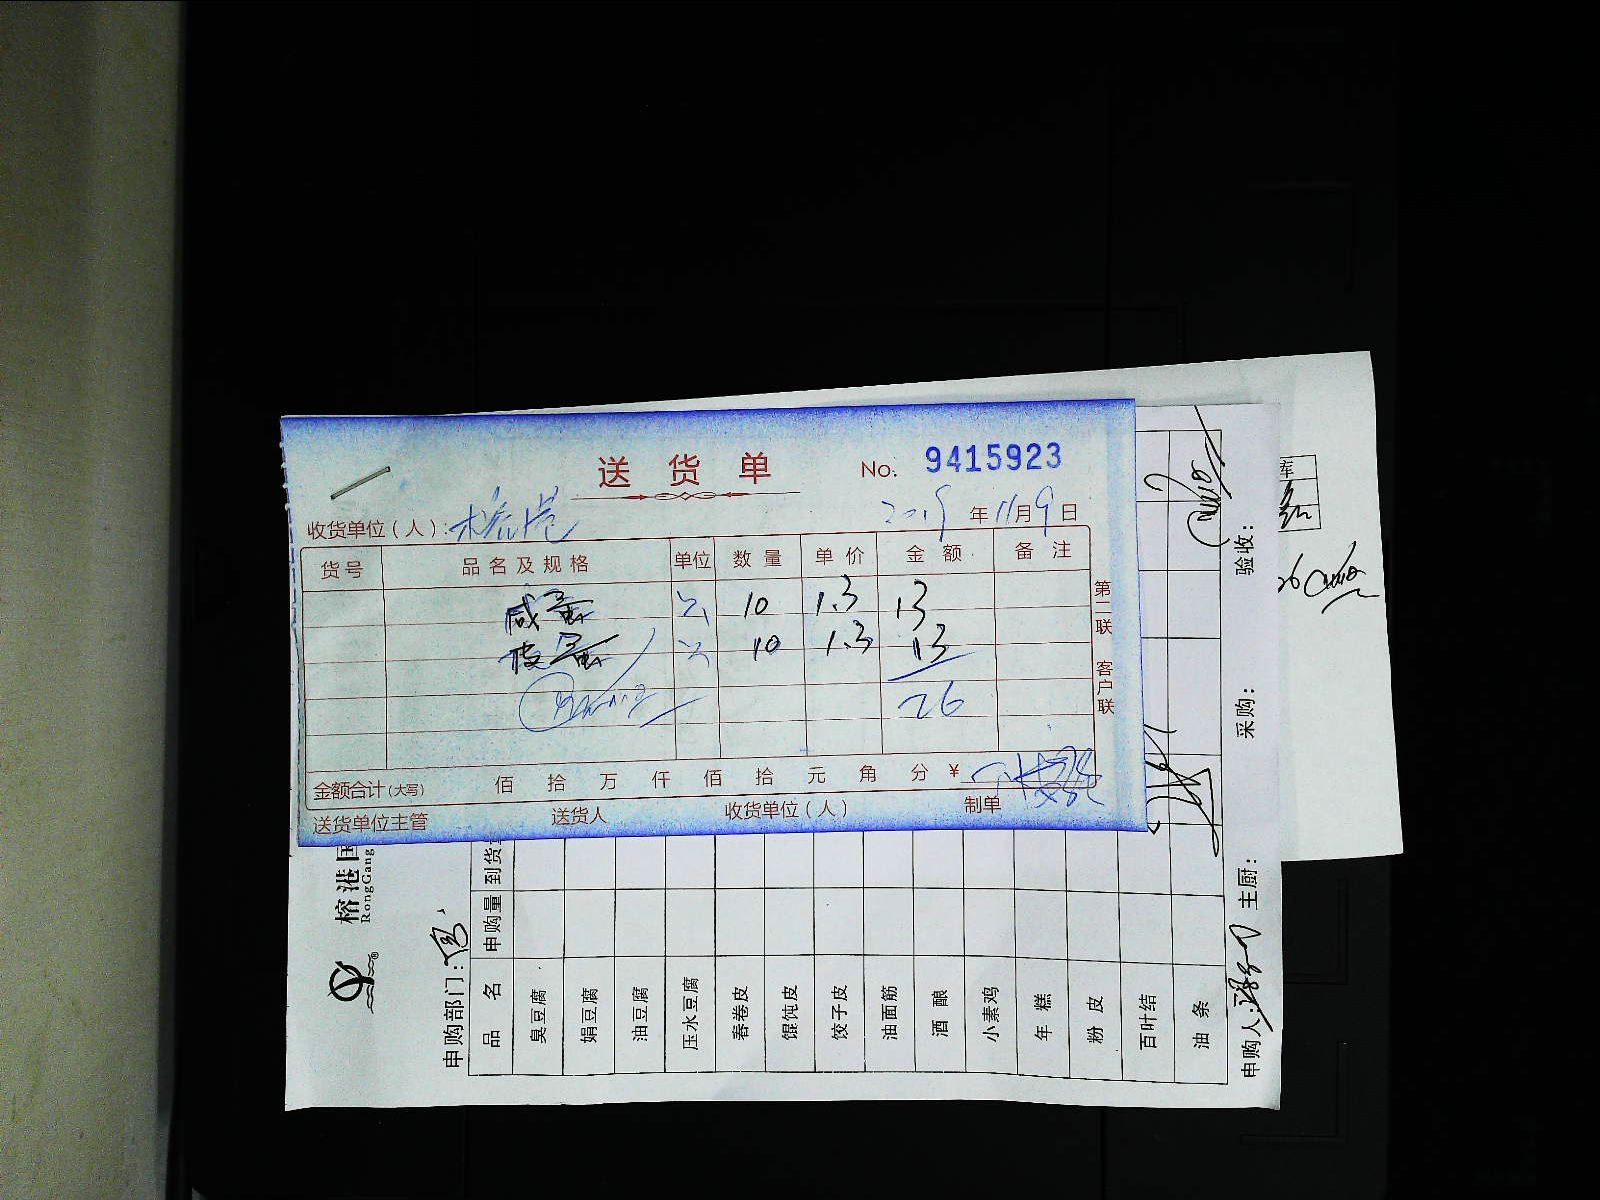 送货单 No. 9415923
收货单位(人): 榕港 2019年11月9日
货号 品名及规格 单位 数量 单价 金额 备注
咸蛋 10 1.3 13
皮蛋 10 1.3 13
26
金额合计(大写) 佰 拾 万 仟 佰 拾 元 角 分 ¥
送货单位主管 送货人 收货单位(人) 制单
第二联 客户联
榕港国
RongGang
申购部门:
品名 申购量 到货
臭豆腐
娟豆腐
油豆腐
压水豆腐
春卷皮
馄饨皮
饺子皮
油面筋
酒酿
小素鸡
年糕
粉皮
百叶结
油条
申购人: 主厨: 采购: 验收:
库
26